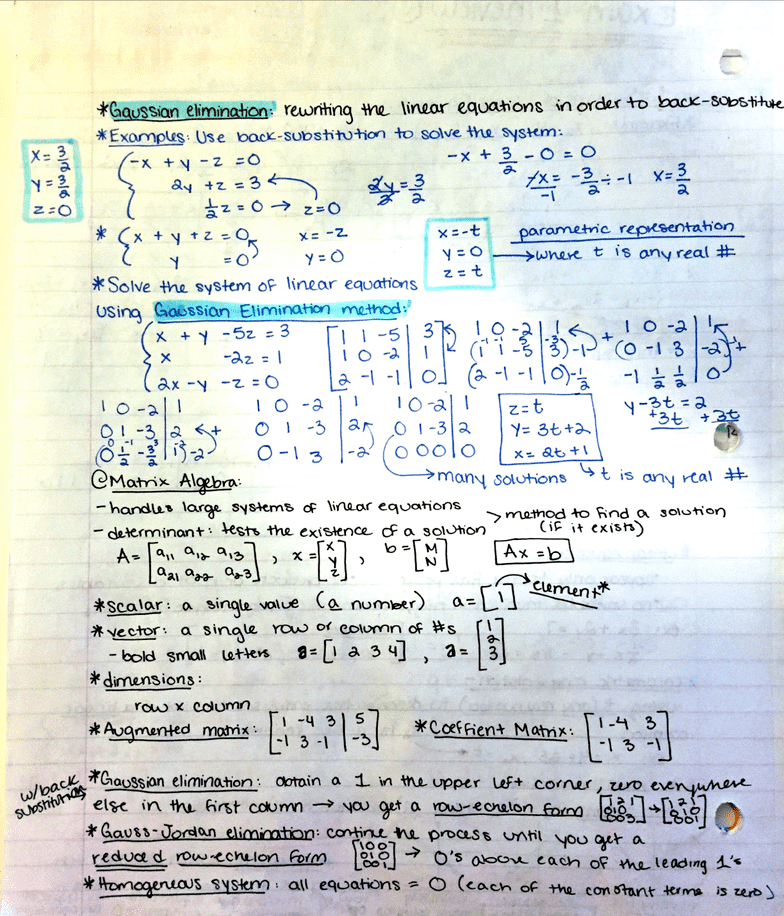 *Gaussian elimination: rewriting the linear equations in order to back-substitute
*Examples: Use back-substitution to solve the system:
x = 3/2
y = 3/2
z = 0
-x + y - z = 0
2y + z = 3
1/2 z = 0 → z = 0
2y/2 = 3/2
-x + 3/2 - 0 = 0
-x/-1 = -3/2 ÷ -1 x = 3/2
* x + y + z = 0
y = 0
x = -z
y = 0
x = -t
y = 0
z = t
parametric representation
→ where t is any real #
*Solve the system of linear equations
using Gaussian Elimination method:
x + y - 5z = 3
x - 2z = 1
2x - y - z = 0
[1 1 -5 | 3]
[1 0 -2 | 1]
[2 -1 -1 | 0]
1 0 -2 | 1
(1 1 -5 | 3) -1
-1 -1 5 -3
(2 -1 -1 | 0) -1/2
+
1 0 -2 | 1
(0 -1 3 | -2) -1 +
-1 1/2 1/2 | 0
1 0 -2 | 1
0 1 -3 | 2 +
(0 1/2 -3/2 | 1) -2
0 -1 3 -2
1 0 -2 | 1
0 1 -3 | 2
0 -1 3 | -2
1 0 -2 | 1
0 1 -3 | 2
0 0 0 | 0
→ many solutions
z = t
y = 3t + 2
x = 2t + 1
↳ t is any real #
y - 3t = 2
+3t +3t
@Matrix Algebra:
- handles large systems of linear equations
- determinant: tests the existence of a solution
> method to find a solution
(if it exists)
A = [a11 a12 a13
a21 a22 a23] , x = [x y z] , b = [M N] Ax = b
*scalar: a single value (a number) a = [1] element*
*vector: a single row or column of #s
- bold small letters a = [1 2 3 4] , a = [1 2 3]
*dimensions:
row x column
*Augmented matrix: [1 -4 3 | 5
-1 3 -1 | -3]
*Coeffient Matrix: [1 -4 3
-1 3 -1]
w/back
substitution
*Gaussian elimination: obtain a 1 in the upper left corner, zero everywhere
else in the first column → you get a row-echelon form [1 2 1 0 1 0 0 0 3] → [1 2 1 0 1 0 0 0 1]
*Gauss-Jordan elimination: contine the process until you get a
reduced row-echelon form [1 0 0 0 1 0 0 0 1] → 0's above each of the leading 1's
*Homogeneous system: all equations = 0 (each of the constant terms is zero)